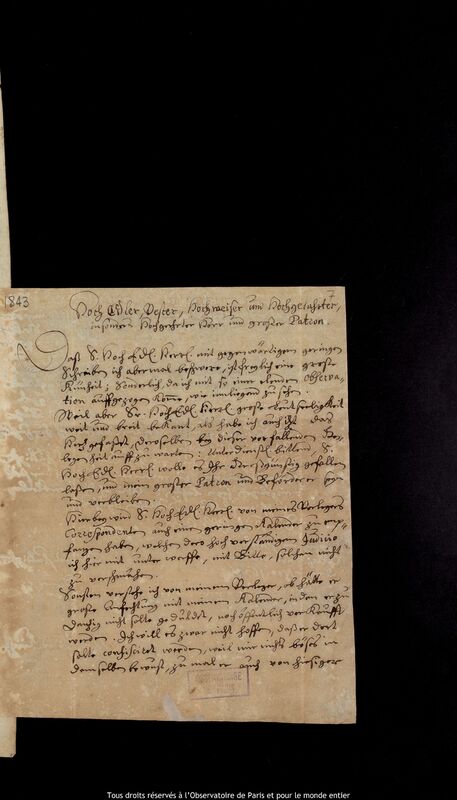 1843
7
Hoch Edler, Vester, Hochweiser und Hochgelahrter,
insonders Hochgeehrter Herr und großer Patron.
Daß S. Hoch Edl. Herrl. mit gegenwärtigem geringen
Schreiben ich abermal beschwere, ist freylich eine große
Kühnheit; sonderlich, da ich mit so einer Observa-
tion auffgezogen komme, wie inliegend zu sehen.
Weil aber Sr. Hoch Edl. Herrl. große Leutseeligkeit
weit und breit bekant, als habe ich auch itzt das
Hertz gefasset, Deroselben bey dieser vorfallenden Ge-
legenheit auffzuwarten: Unterdienstl. bittend S.
Hoch Edl. Herrl. wolle es Ihr gefallen
lassen, und mein großer Patron und Beforderer seyn
und verbleiben.
Hierbey wird S. Hoch Edl. Herrl. von meines Verlegers
Correspondenten auch einen geringen Kalender zu emp-
fangen haben, welchen dero hoch verständigen Judicio
ich hiermit unterwerffe, mit Bitte, solchen nicht
zu verschmähen.
Sonsten verstehe ich von meinem Verleger, ob hätte er
große Anfechtung mit meinem Kalender, in dem er zu
Danzig nicht solte geduldet, noch öffentlich verkaufft
werden. Ich will es zwar nicht hoffen, daß er dort
solte confisciret werden, weil mir nichts böses in
demselben bewust, zumal er auch von hiesiger
OBSERVATOIRE
Tous droits réservés à l'Observatoire de Paris et pour le monde entier